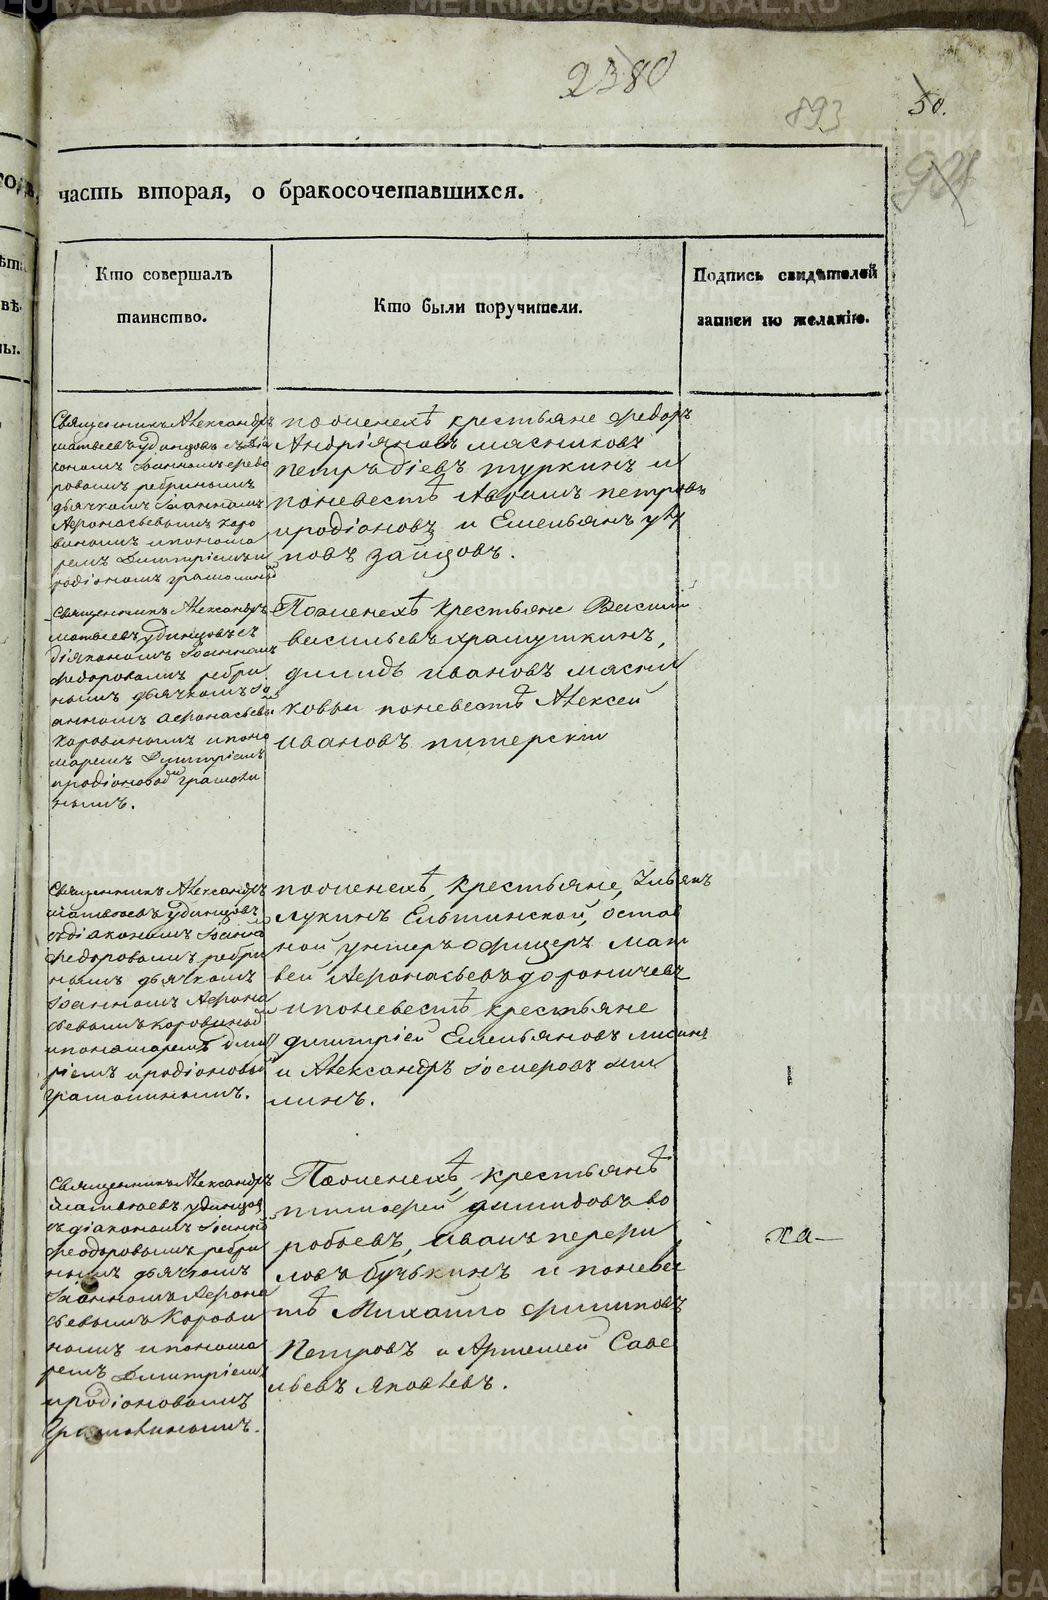 2380
893
50.
часть вторая, о бракосочетавшихся.
Кто совершалъ
таинство.
Кто были поручители.
Подпись свидѣтелей
записи по желанію.
Священникъ Александръ
Матвеевъ Удинцовъ съ діа
кономъ Іоанномъ Федо
ровымъ Ребринымъ
дьячкомъ Іоанномъ
Афонасьевымъ Коро
винымъ и понома
ремъ Димитріемъ И
родіоновымъ
поженихѣ крестьяне Федоръ
Андріяновъ Мясниковъ
Петръ Туркинъ и
поневестѣ Авраамъ Петровъ
Иродіоновъ и Емельянъ
повъ Зайцовъ.
Священникъ Александръ
Матвеевъ Удинцовъ съ
діякономъ Іоанномъ
Федоровымъ Ребри
нымъ дьячкомъ Іо
анномъ Афонасьевы
Коровинымъ и поно
маремъ Димитріемъ
Иродіоновы Грамоли
нымъ.
Поженихѣ крестьяне Василій
Васильевъ Храмушкинъ,
Диմидъ Ивановъ Мясни
ковы поневестѣ Алексей
Ивановъ Питерскій
Священникъ Александръ
Матвѣевъ Удинцовъ
съ діакономъ Іоанно
Федоровымъ Ребри
нымъ дьячкомъ
Іоанномъ Афона
сьевымъ Коровиной
и пономаремъ Дми
ріемъ Иродіоновы
Грамолинымъ.
поженихѣ, крестьяне,
Лукинъ Ельтинской, остав
ной унтеръ офицеръ Мат
вей Афонасьевъ Дороничевъ
и поневестѣ крестьяне
Димитрій Емельяновъ Лисинъ
и Александръ
линъ.
Священникъ Александръ
Матвѣевъ Удинцов
съ діакономъ Іоанно
Феодоровымъ Ребри
нымъ дьячкомъ
Іоанномъ Афона
сьевымъ Корови
нымъ и понома
ремъ Димитріемъ
Иродіоновымъ
Грамолинымъ.
Поженихѣ, крестьянѣ
Тимофей Димидовъ Во
робьевъ, Иванъ Перфи
ловъ Бучькинъ и поневес
тѣ Михайло Филиповъ
Петровъ и Артемей Саве
льевъ Яковлевъ.
ха—